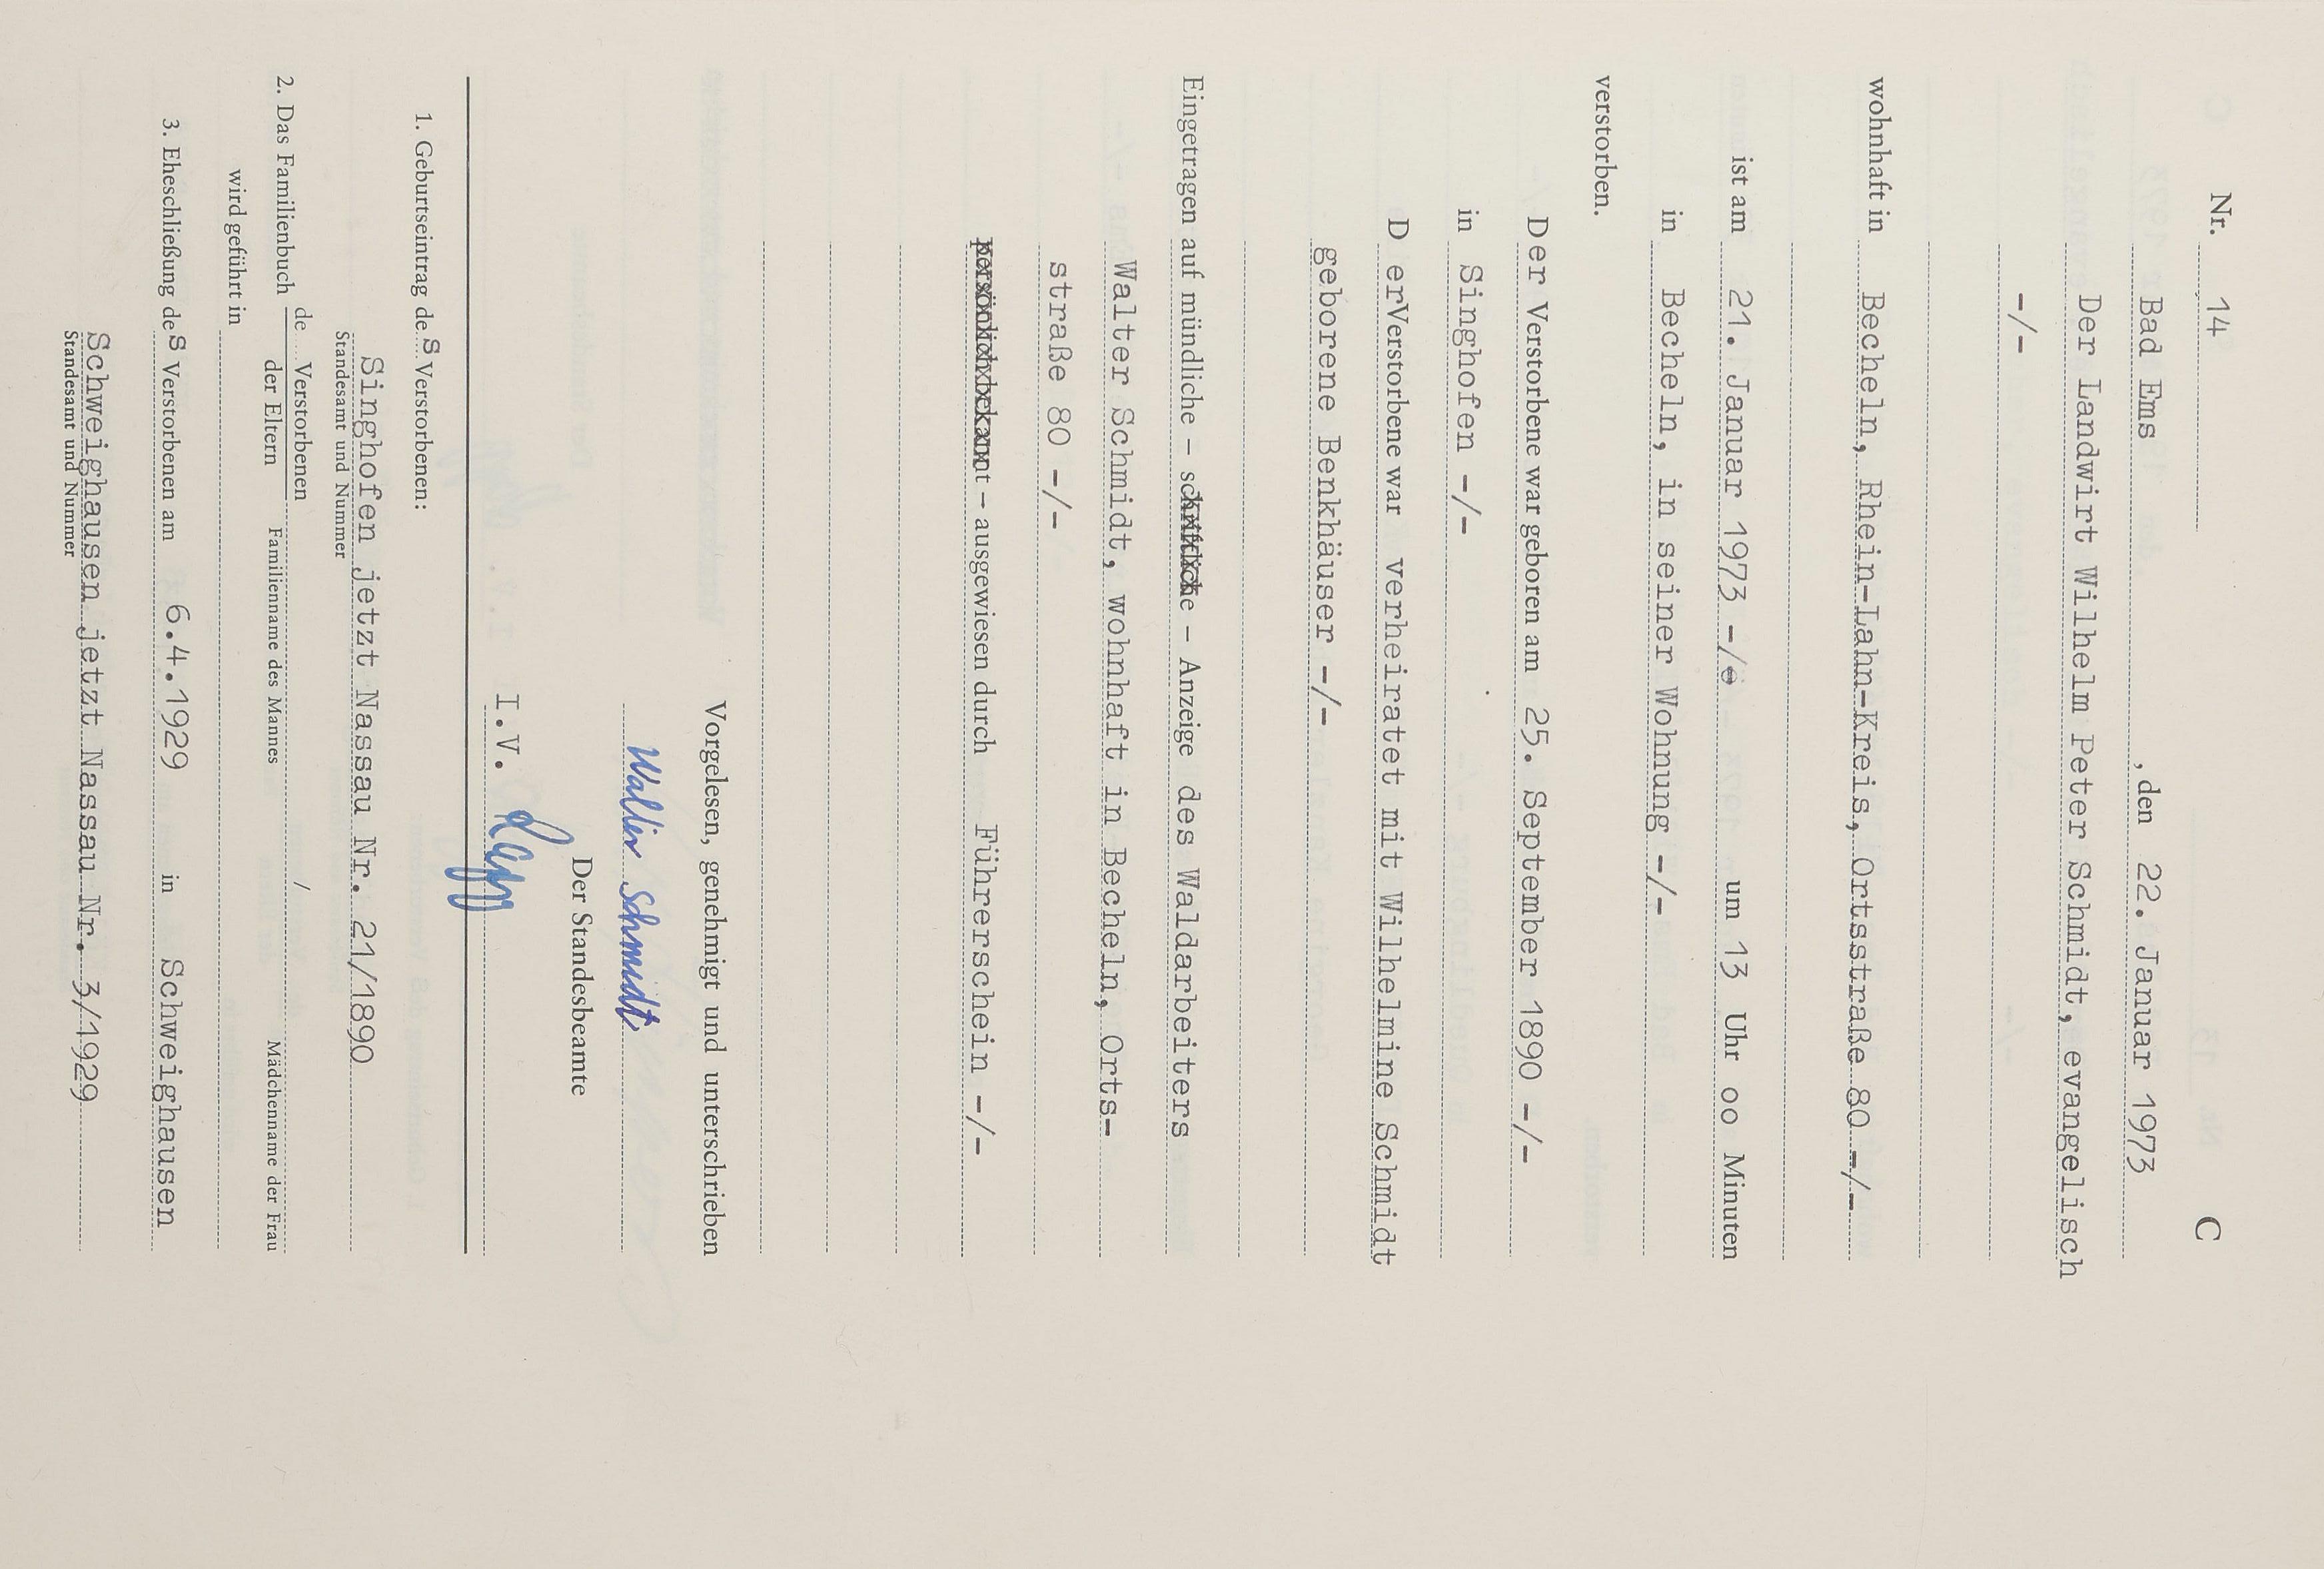 Nr. 14 C
Bad Ems, den 22. Januar 1973
Der Landwirt Wilhelm Peter Schmidt, evangelisch
-/-
wohnhaft in Becheln, Rhein-Lahn-Kreis, Ortsstraße 80 -/-
ist am 21. Januar 1973 -/- um 13 Uhr oo Minuten
in Becheln, in seiner Wohnung -/-
verstorben.
Der Verstorbene war geboren am 25. September 1890 -/-
in Singhofen -/-
D erVerstorbene war verheiratet mit Wilhelmine Schmidt
geborene Benkhäuser -/-
Eingetragen auf mündliche – schriftliche – Anzeige des Waldarbeiters
Walter Schmidt, wohnhaft in Becheln, Orts-
straße 80 -/-
persönlich bekannt – ausgewiesen durch Führerschein -/-
Vorgelesen, genehmigt und unterschrieben
Walter Schmidt
Der Standesbeamte
I.V.
1. Geburtseintrag des Verstorbenen:
Singhofen jetzt Nassau Nr. 21/1890
Standesamt und Nummer
de Verstorbenen /
2. Das Familienbuch der Eltern Familienname des Mannes Mädchenname der Frau
wird geführt in
3. Eheschließung des Verstorbenen am 6.4.1929 in Schweighausen
Schweighausen jetzt Nassau Nr. 3/1929
Standesamt und Nummer